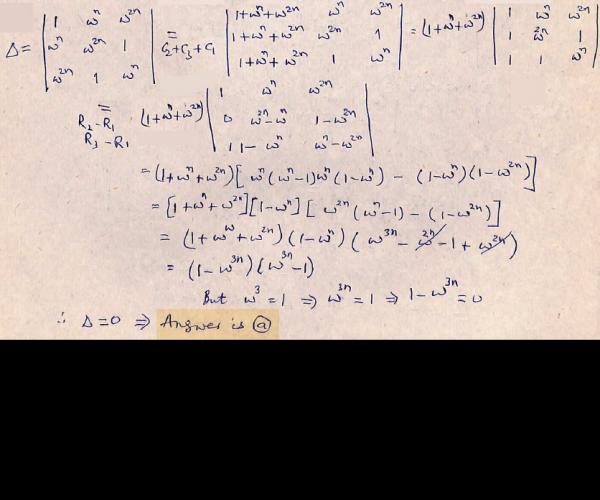 Δ = | 1 ωⁿ ω²ⁿ | = | 1+ωⁿ+ω²ⁿ ωⁿ ω²ⁿ | = (1+ωⁿ+ω²ⁿ) | 1 ωⁿ ω²ⁿ |
| ωⁿ ω²ⁿ 1 | C₂+C₃+C₁ | 1+ωⁿ+ω²ⁿ ω²ⁿ 1 | | 1 ω²ⁿ 1 |
| ω²ⁿ 1 ωⁿ | | 1+ωⁿ+ω²ⁿ 1 ωⁿ | | 1 1 ωⁿ |
= (1+ωⁿ+ω²ⁿ) | 1 ωⁿ ω²ⁿ |
R₂-R₁ | 0 ω²ⁿ-ωⁿ 1-ω²ⁿ |
R₃-R₁ | 1 1-ωⁿ ωⁿ-ω²ⁿ |
= (1+ωⁿ+ω²ⁿ) [ ωⁿ(ωⁿ-1)ωⁿ(1-ωⁿ) - (1-ωⁿ)(1-ω²ⁿ) ]
= [1+ωⁿ+ω²ⁿ] [1-ωⁿ] [ ω²ⁿ (ωⁿ-1) - (1-ω²ⁿ) ]
= (1+ωⁿ+ω²ⁿ) (1-ωⁿ) ( ω³ⁿ - ω²ⁿ - 1 + ω²ⁿ )
= (1-ω³ⁿ) (ω³ⁿ-1)
But ω³ = 1 ⇒ ω³ⁿ = 1 ⇒ 1-ω³ⁿ = 0
∴ Δ = 0 ⇒ Answer is ⓐ